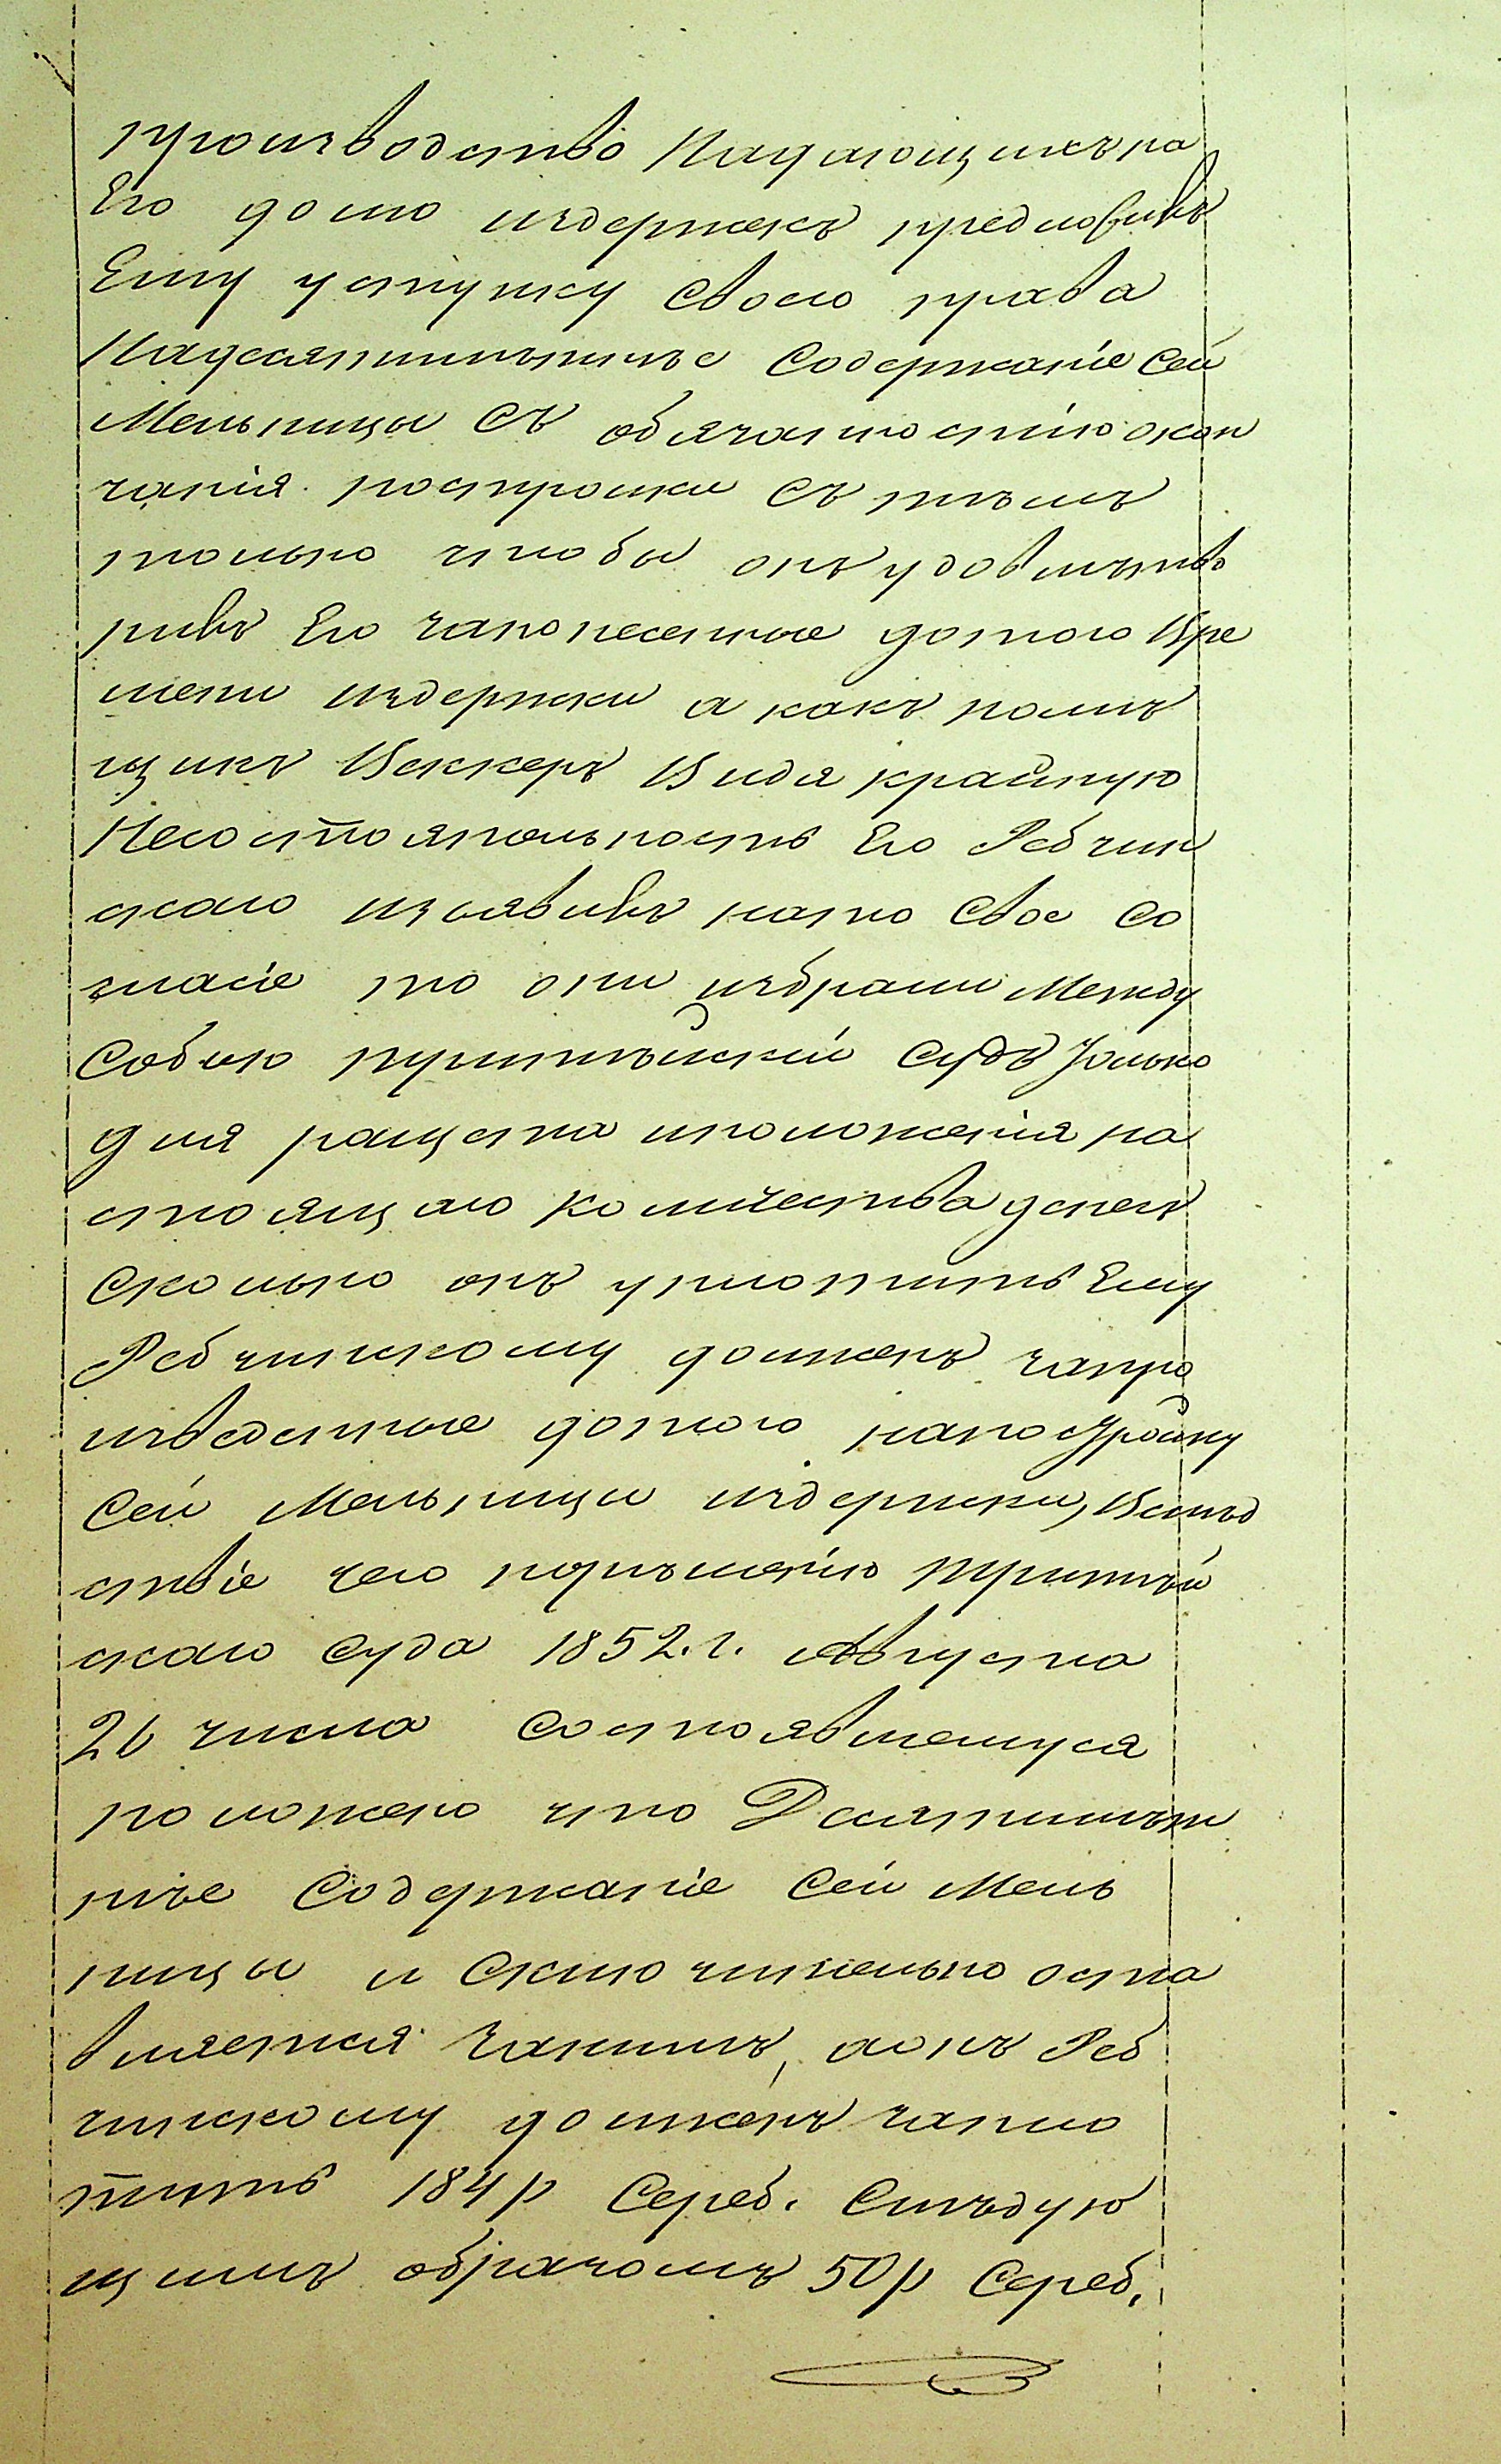 производство Падающихъ на
Его долю издержекъ предложивъ
Ему уступку своего права
Надесятилѣтнѣе Содержаніе Сей
Мельницы съ обязанностію окон
чанія постройки съ тѣмъ
только чтобы онъ удовлѣтво
ривъ Его за понесенные до того Вре
мени издержки а какъ помѣ
щикъ Беккеръ Видя крайную
Несостоятельность Его Ребчин
скаго изъявивъ на то свое Со
гласіе то они избрали Между
Собою третѣйскій Судъ Только
для ращета иположенія на
стоящаго Количества денегъ
Сколько онъ уплотить Ему
Ребчинскому долженъ за про
изведенные до того на постройку
Сей Мельницы издержки, Вслѣд
ствіе чего порѣшенію Третѣй
скаго Суда 1852. г. Августа
26 числа Состоявшемуся
положено что Десятилѣт
нѣе Содержаніе Сей Мель
ницы и Сключительно оста
вляется занимъ, а онъ Реб
чинскому долженъ запло
тить 184 р Сереб. Слѣдую
щимъ образомъ 50 р Сереб.